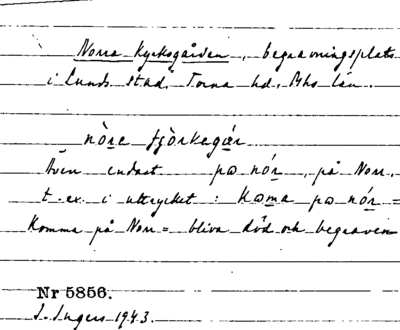 Norra Kyrkogården, begravningsplats
i Lunds stad, Torna hd, Mhs län.
nòre fjòrkegǽr
Även endast pə nór, på Norr,
t. ex. i uttrycket: Kəma pə nór =
Komma på Norr = bliva död och begraven
Nr 5856.
I. Ingers 1943.